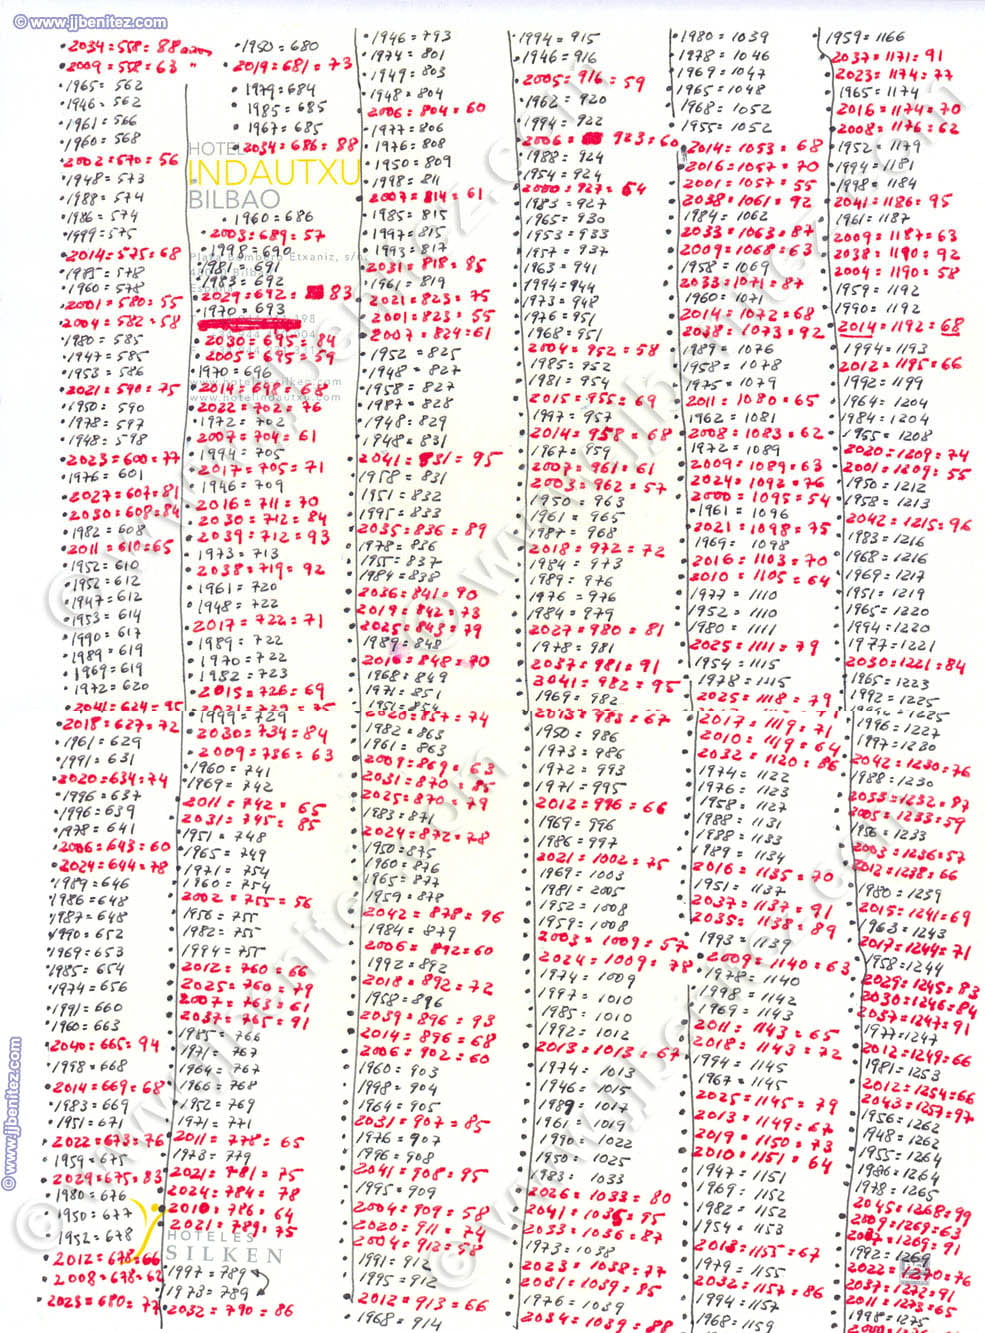 © www.jjbenitez.com
2034=558=88 años
2009=558=63 "
1965=562
1946=562
1961=566
1960=568
2002=570=56
1948=573
1988=574
1986=574
1999=575
2014=575=68
1985=578
1960=578
2001=580=55
2004=582=58
1980=585
1947=585
1953=586
2021=590=75
1950=590
1978=597
1948=598
2023=600=77
1976=601
2027=607=81
2030=608=84
1982=608
2011=610=65
1952=610
1952=612
1947=612
1953=614
1990=617
1989=619
1969=619
1972=620
2041=624=95
2018=627=72
1961=629
1991=631
2020=634=74
1996=637
1996=639
1978=641
2006=643=60
2024=644=78
1989=646
1986=648
1987=648
1990=652
1969=653
1985=654
1974=656
1991=660
1960=663
2040=665=94
1998=668
2014=669=68
1983=669
1951=671
2022=673=76
1959=675
2029=675=83
1980=676
1950=677
1952=678
2012=678=66
2008=678=62
2023=680=77
1950=680
2019=681=73
1979=684
1985=685
1967=685
2034=686=88
HOTEL
INDAUTXU
BILBAO
1960=686
2003=689=57
1998=690
1981=691
1983=692
2029=692=83
1970=693
2030=695=84
2005=695=59
1970=696
www.hotelindautxu.com
2014=698=68
2022=702=76
1972=702
2007=704=61
1994=705
2017=705=71
1946=709
2016=711=70
2030=712=84
2039=712=93
1973=713
2038=719=92
1961=720
1948=722
2017=722=71
1989=722
1970=722
1982=723
2015=726=69
1999=729
2030=734=84
2009=736=63
1960=741
1969=742
2011=742=65
2031=745=85
1951=748
1965=749
1971=754
1960=754
2002=755=56
1956=755
1982=755
1994=755
2012=760=66
2025=760=79
2007=763=61
2037=765=91
1985=766
1971=767
1964=767
1966=768
1952=769
1971=771
2011=778=65
1978=779
2021=781=75
2024=784=78
2010=786=64
2021=789=75
HOTELES
SILKEN
1997=789
1973=789
2032=790=86
1946=793
1974=801
1949=803
1948=804
2006=804=60
1977=806
1976=808
1950=809
1998=811
2007=814=61
1985=815
1997=815
1993=817
2031=818=85
1961=819
2021=823=75
2001=823=55
2007=824=61
1952=825
1948=827
1958=827
1987=828
1948=829
1948=831
2041=831=95
1958=831
1951=832
1995=833
2035=836=89
1978=836
1955=837
1984=838
2036=841=90
2019=842=73
2025=843=79
1989=848
2016=848=70
1968=849
1971=851
1951=854
2020=857=74
1982=863
1961=863
2009=869=63
2031=870=85
2025=870=79
1983=871
2024=872=78
1950=875
1960=876
1965=877
1959=878
2042=878=96
1984=879
2006=892=60
1992=892
2018=892=72
1958=896
2039=896=93
2014=896=68
2006=902=60
1960=903
1998=904
1964=905
2031=907=85
1976=907
1996=908
2041=908=95
1995=909
2004=909=58
2020=911=74
2004=912=58
1991=912
1995=912
2012=913=66
1968=914
1994=915
1946=916
2005=916=59
1962=920
1994=922
2006=923=60
1988=924
1954=924
2000=927=54
1983=927
1965=930
1953=933
1957=937
1963=941
1994=944
1973=948
1976=951
1968=951
2004=952=58
1985=952
1981=954
2015=955=69
1997=957
2014=958=68
1967=959
2007=961=61
2003=962=57
1950=963
1961=965
1987=968
2018=972=72
1984=973
1989=976
1976=976
1984=979
2027=980=81
1978=981
2037=981=91
2041=982=95
1969=982
2013=983=67
1950=986
1973=986
1972=993
1971=995
2012=996=66
1969=996
1986=997
2021=1002=75
1969=1003
1981=2005
1952=1008
1959=1008
2003=1009=57
2024=1009=78
1974=1009
1997=1010
1985=1010
1992=1012
2013=1013=67
1974=1013
1946=1015
1989=1017
1961=1019
1990=1022
1950=1025
1983=1033
2026=1033=80
2041=1035=95
2033=1036=87
1973=1038
2023=1038=77
2031=1039=85
1976=1039
2034=1039=88
1980=1039
1978=1046
1969=1047
1965=1048
1968=1052
1955=1052
2014=1053=68
2016=1057=70
2001=1057=55
2038=1061=92
1984=1062
2033=1063=87
2009=1068=63
1958=1069
2033=1071=87
1960=1071
2014=1072=68
2038=1073=92
1989=1076
1958=1078
1975=1079
2011=1080=65
1962=1081
2008=1083=62
1972=1089
2009=1089=63
2024=1092=76
2000=1095=54
1961=1096
2021=1098=75
1969=1098
2016=1103=70
2010=1105=64
1977=1110
1952=1110
1980=1111
2025=1111=79
1954=1115
1978=1115
2025=1118=79
2017=1119=71
2010=1119=64
2032=1120=86
1974=1122
1976=1123
1958=1127
1988=1131
1988=1133
1989=1134
2016=1135=70
1951=1137
2037=1137=91
2035=1138=89
1993=1139
2009=1140=63
1978=1140
1998=1142
1969=1143
2011=1143=65
2018=1143=72
1994=1145
1967=1145
2025=1145=79
2013=1149=67
2019=1150=73
2010=1151=64
1947=1151
1969=1152
1982=1152
1954=1153
2013=1155=67
1979=1155
2032=1157=86
1994=1157
1968=1159
1959=1166
2037=1171=91
2023=1174=77
1965=1174
2016=1174=70
2008=1176=62
1952=1179
1994=1181
1998=1184
2041=1186=95
1961=1187
2009=1187=63
2038=1190=92
2004=1190=58
1959=1192
1990=1192
2014=1192=68
1994=1193
2012=1195=66
1992=1199
1964=1204
1984=1204
1955=1208
2020=1209=74
2001=1209=55
1950=1212
1958=1213
2042=1215=96
1983=1216
1968=1216
1969=1217
1951=1219
1965=1220
1994=1220
1977=1221
2030=1221=84
1965=1223
1992=1225
1996=1227
1997=1230
2042=1230=76
1988=1230
2033=1232=87
2005=1233=59
1956=1233
2003=1236=57
2012=1238=66
1980=1239
2015=1241=69
1963=1243
2017=1244=71
1958=1244
2029=1245=83
2030=1246=84
2037=1247=91
1977=1247
2012=1249=66
1981=1253
2012=1254=66
2043=1257=97
1956=1262
1948=1262
1955=1264
1986=1264
1978=1265
2045=1268=99
2009=1269=63
2037=1269=91
1992=1269
2022=1270=76
2037=1272=91
2011=1273=65
1998=1275